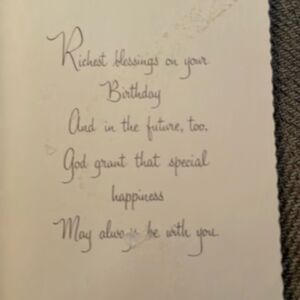 Richest blessings on your
Birthday
And in the future, too.
God grant that special
happiness
May always be with you.